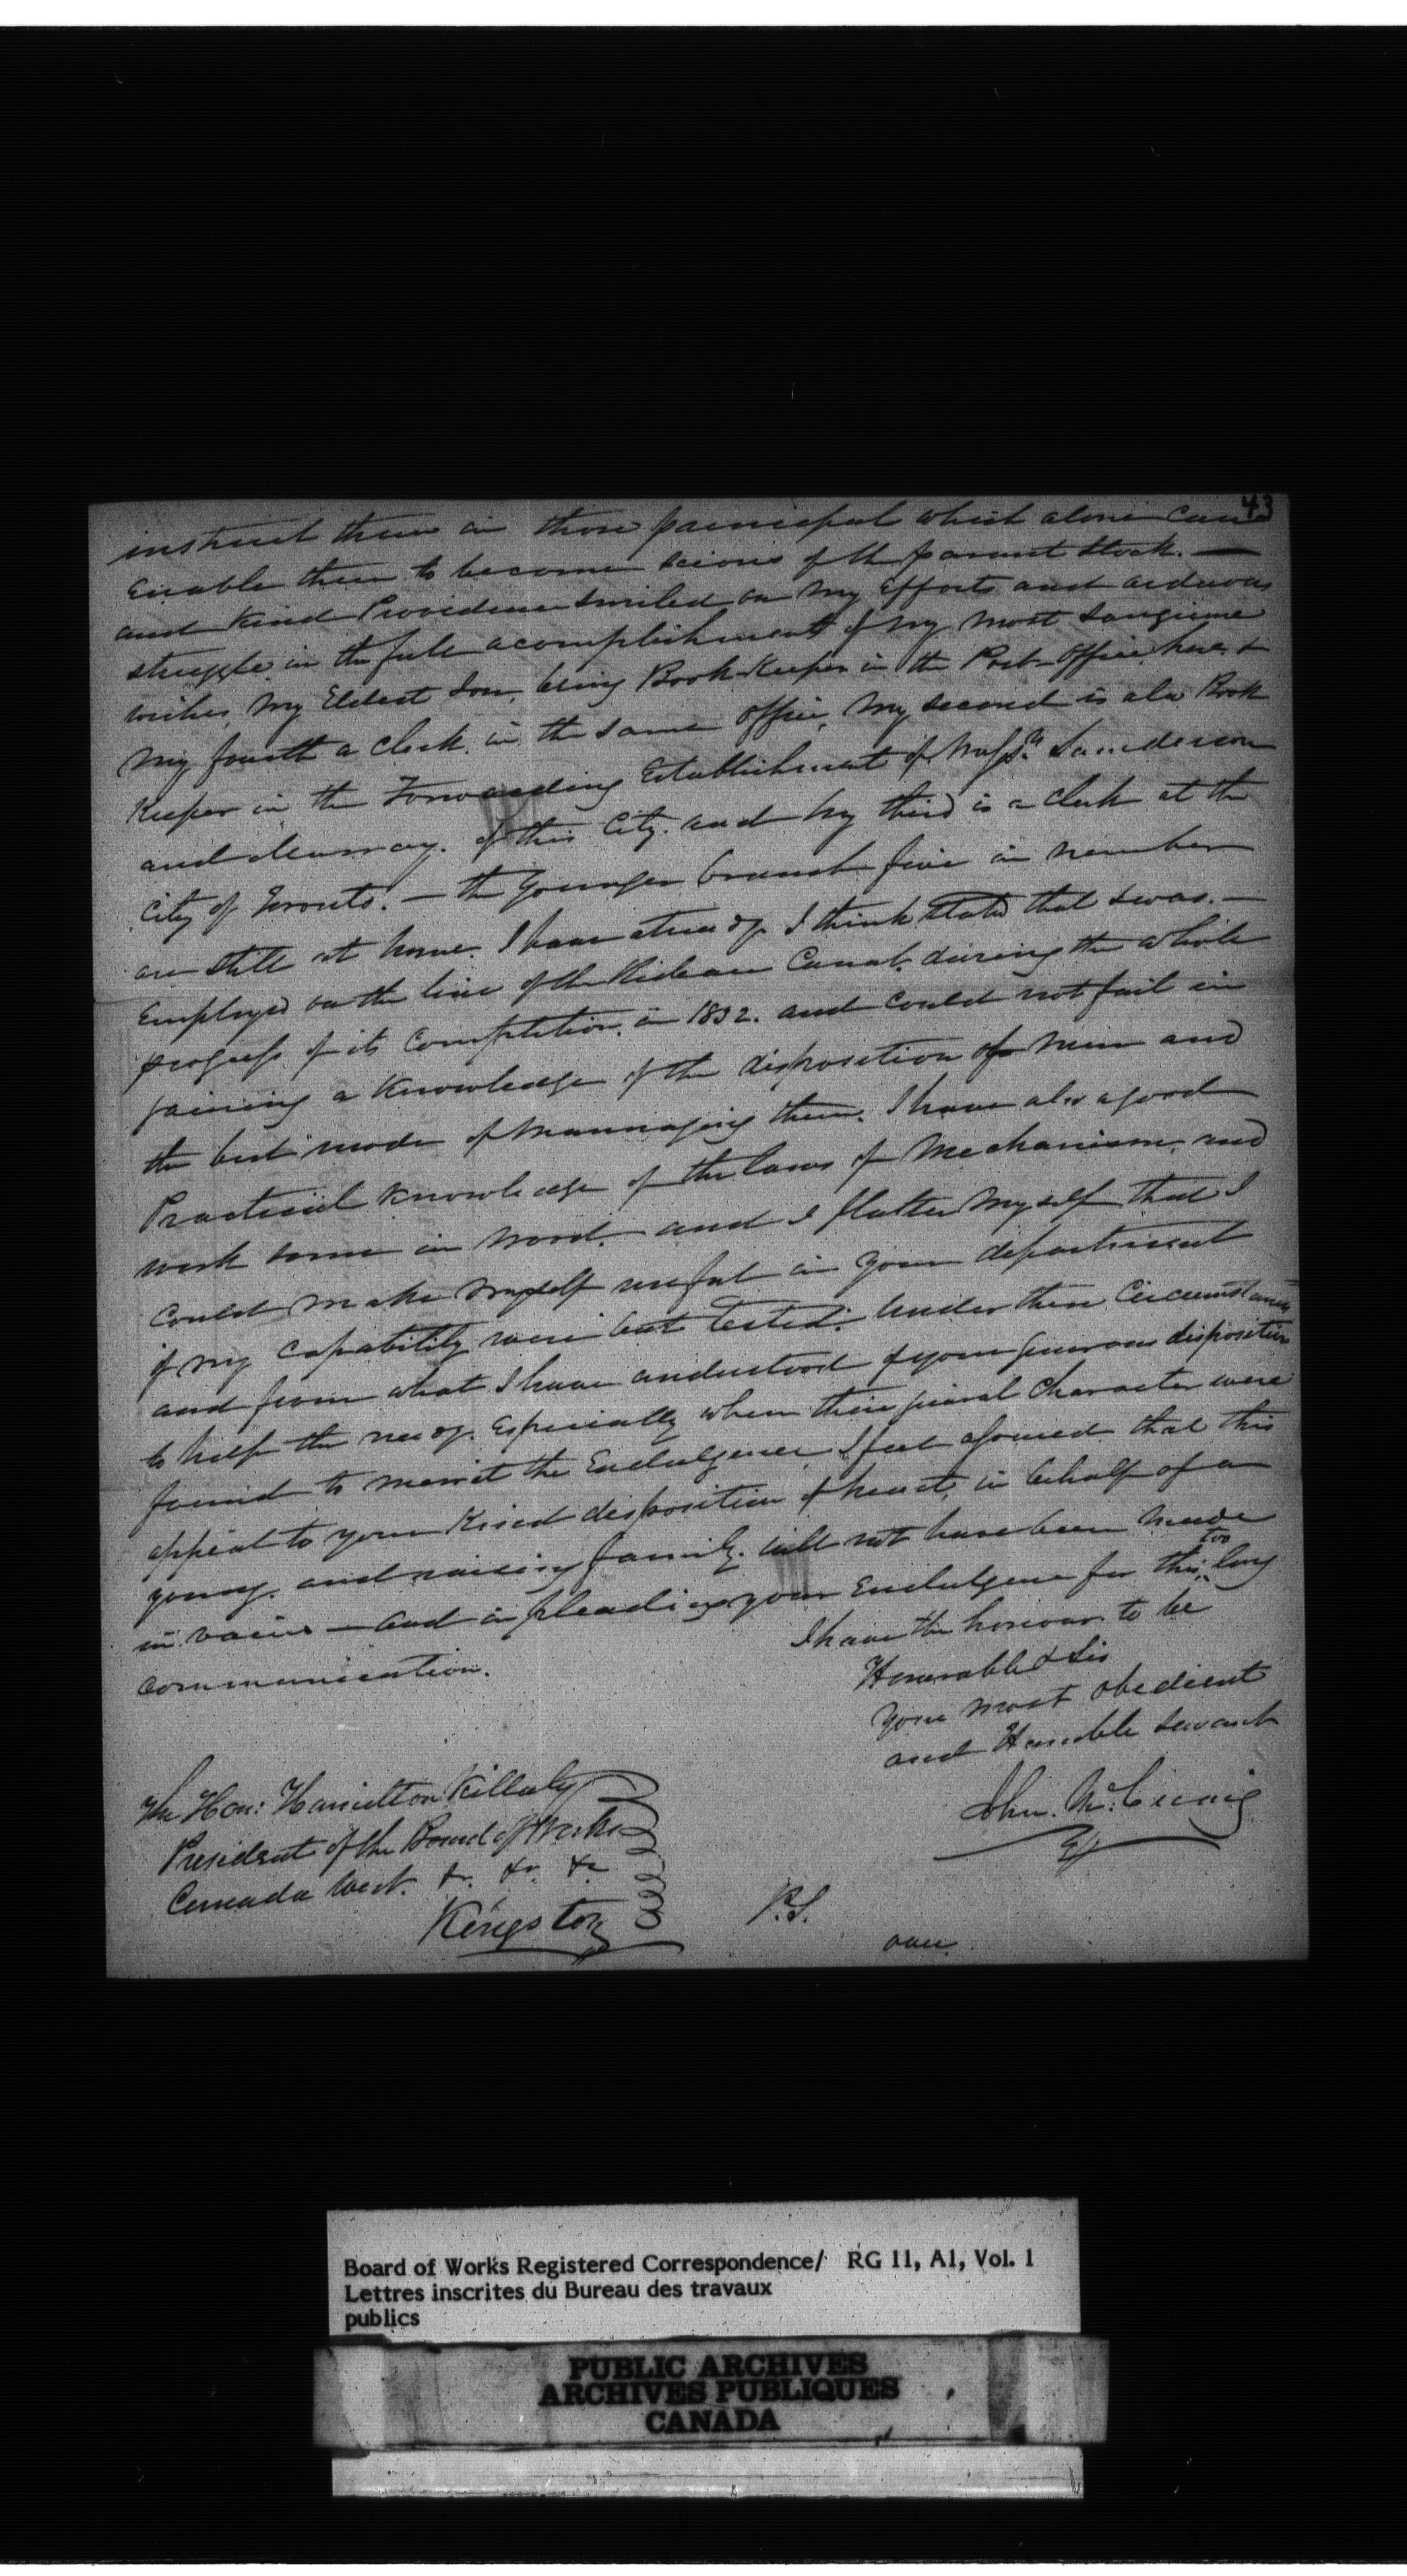 43
instruct them in those principal which alone can
Enable them to become scions of th parent stock. —
and Kind Providence smiled on my Efforts and arduous
struggle in the full acomplishment of my most sanguine
wishes, my Eldest Son, being Book-Keeper in the Post-office here &
my fourth a clerk in the same office, my second is also Book
Keeper in the Forwarding Establishment of Messrs. Sanderson
and Murray. of this City. and my third is a clerk at the
City of Toronto. — the younger branch five in number
are still at home. I have already I think stated that I was. —
Employed on the line of the Rideau Canal. during the whole
progress of its Completion in 1832. and could not fail in
gaining a Knowledge of the disposition of men and
the best mode of mannaging them. I have also a good
Practical Knowledge of the laws of Mechanism, and
work some in wood. and I flatter myself that I
could make myself useful in your department
if my capability were but tested. Under these Circumstances
and from what I have understood of your generous disposition
to help the needy. Especially when their general Character were
found to merit the Endulgence I feel assured that this
appeal to your Kind disposition of heart, in behalf of a
young. and raising family. will not have been made
in vain — and in pleading your Endulgence for this too long
communication.
I have the honour to be
Honorable Sir
your most obedient
and Humble servant
John. Mc.
The Hon: Hamilton Killaly
President of the Board of Works
Canada West. &c. &c. &c
Kingston
P.S.
over.
Board of Works Registered Correspondence/ RG 11, A1, Vol. 1
Lettres inscrites du Bureau des travaux
publics
PUBLIC ARCHIVES
ARCHIVES PUBLIQUES
CANADA